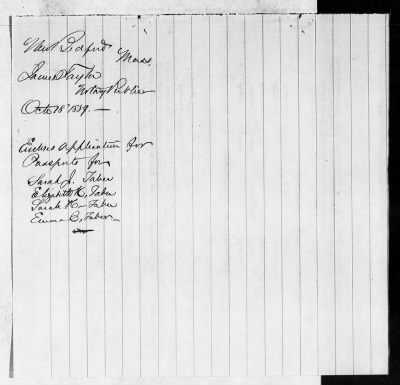 New Bedford Mass.
James Taylor
Notary Public
Octo 18" 1889. —
Encloses application for
Passports for
Sarah J. Taber
Elizabeth K, Taber
Sarah H — Taber
Emma C, Taber —